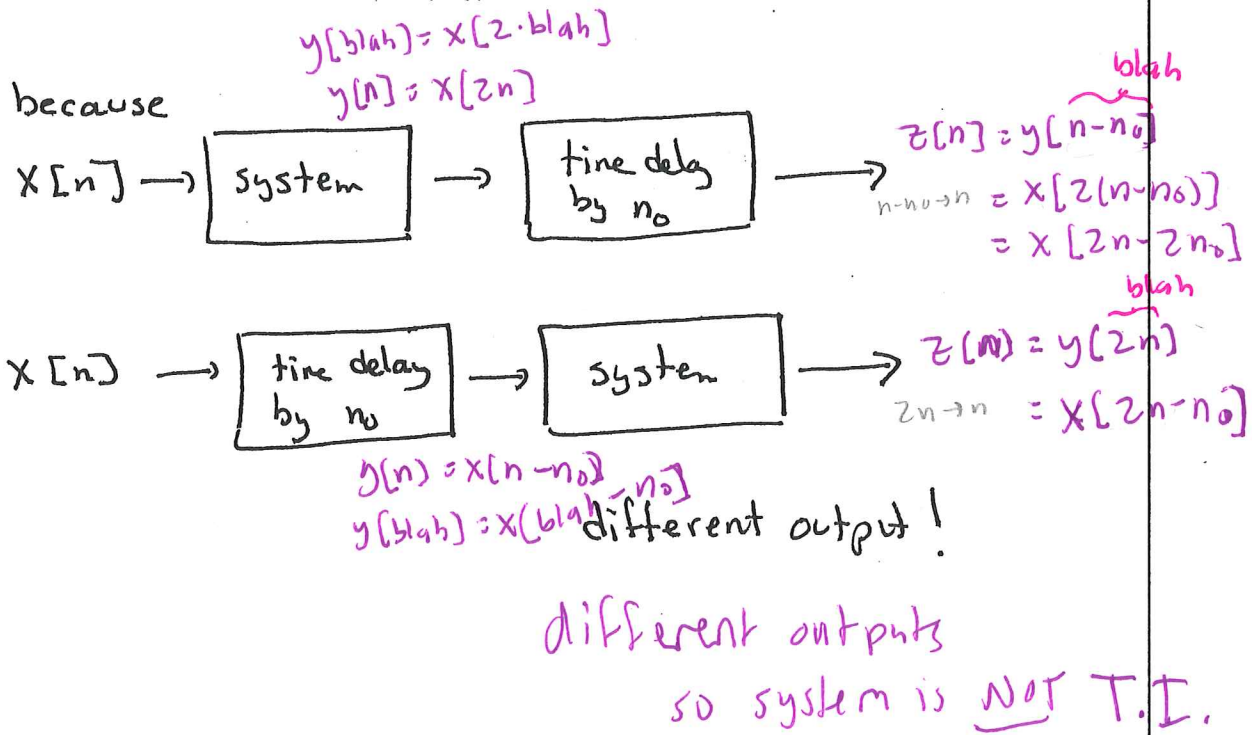 y[blah] = x[2·blah]
y[n] = x[2n]
because
x[n] → system → time delay by n₀ →
blah
z[n] = y[n-n₀]
n-n₀→n = x[2(n-n₀)]
= x[2n-2n₀]
x[n] → time delay by n₀ → system →
blah
z[n] = y[2n]
2n→n = x[2n-n₀]
y[n] = x[n-n₀]
y[blah] = x[blah-n₀]
different output!
different outputs
so system is NOT T.I.